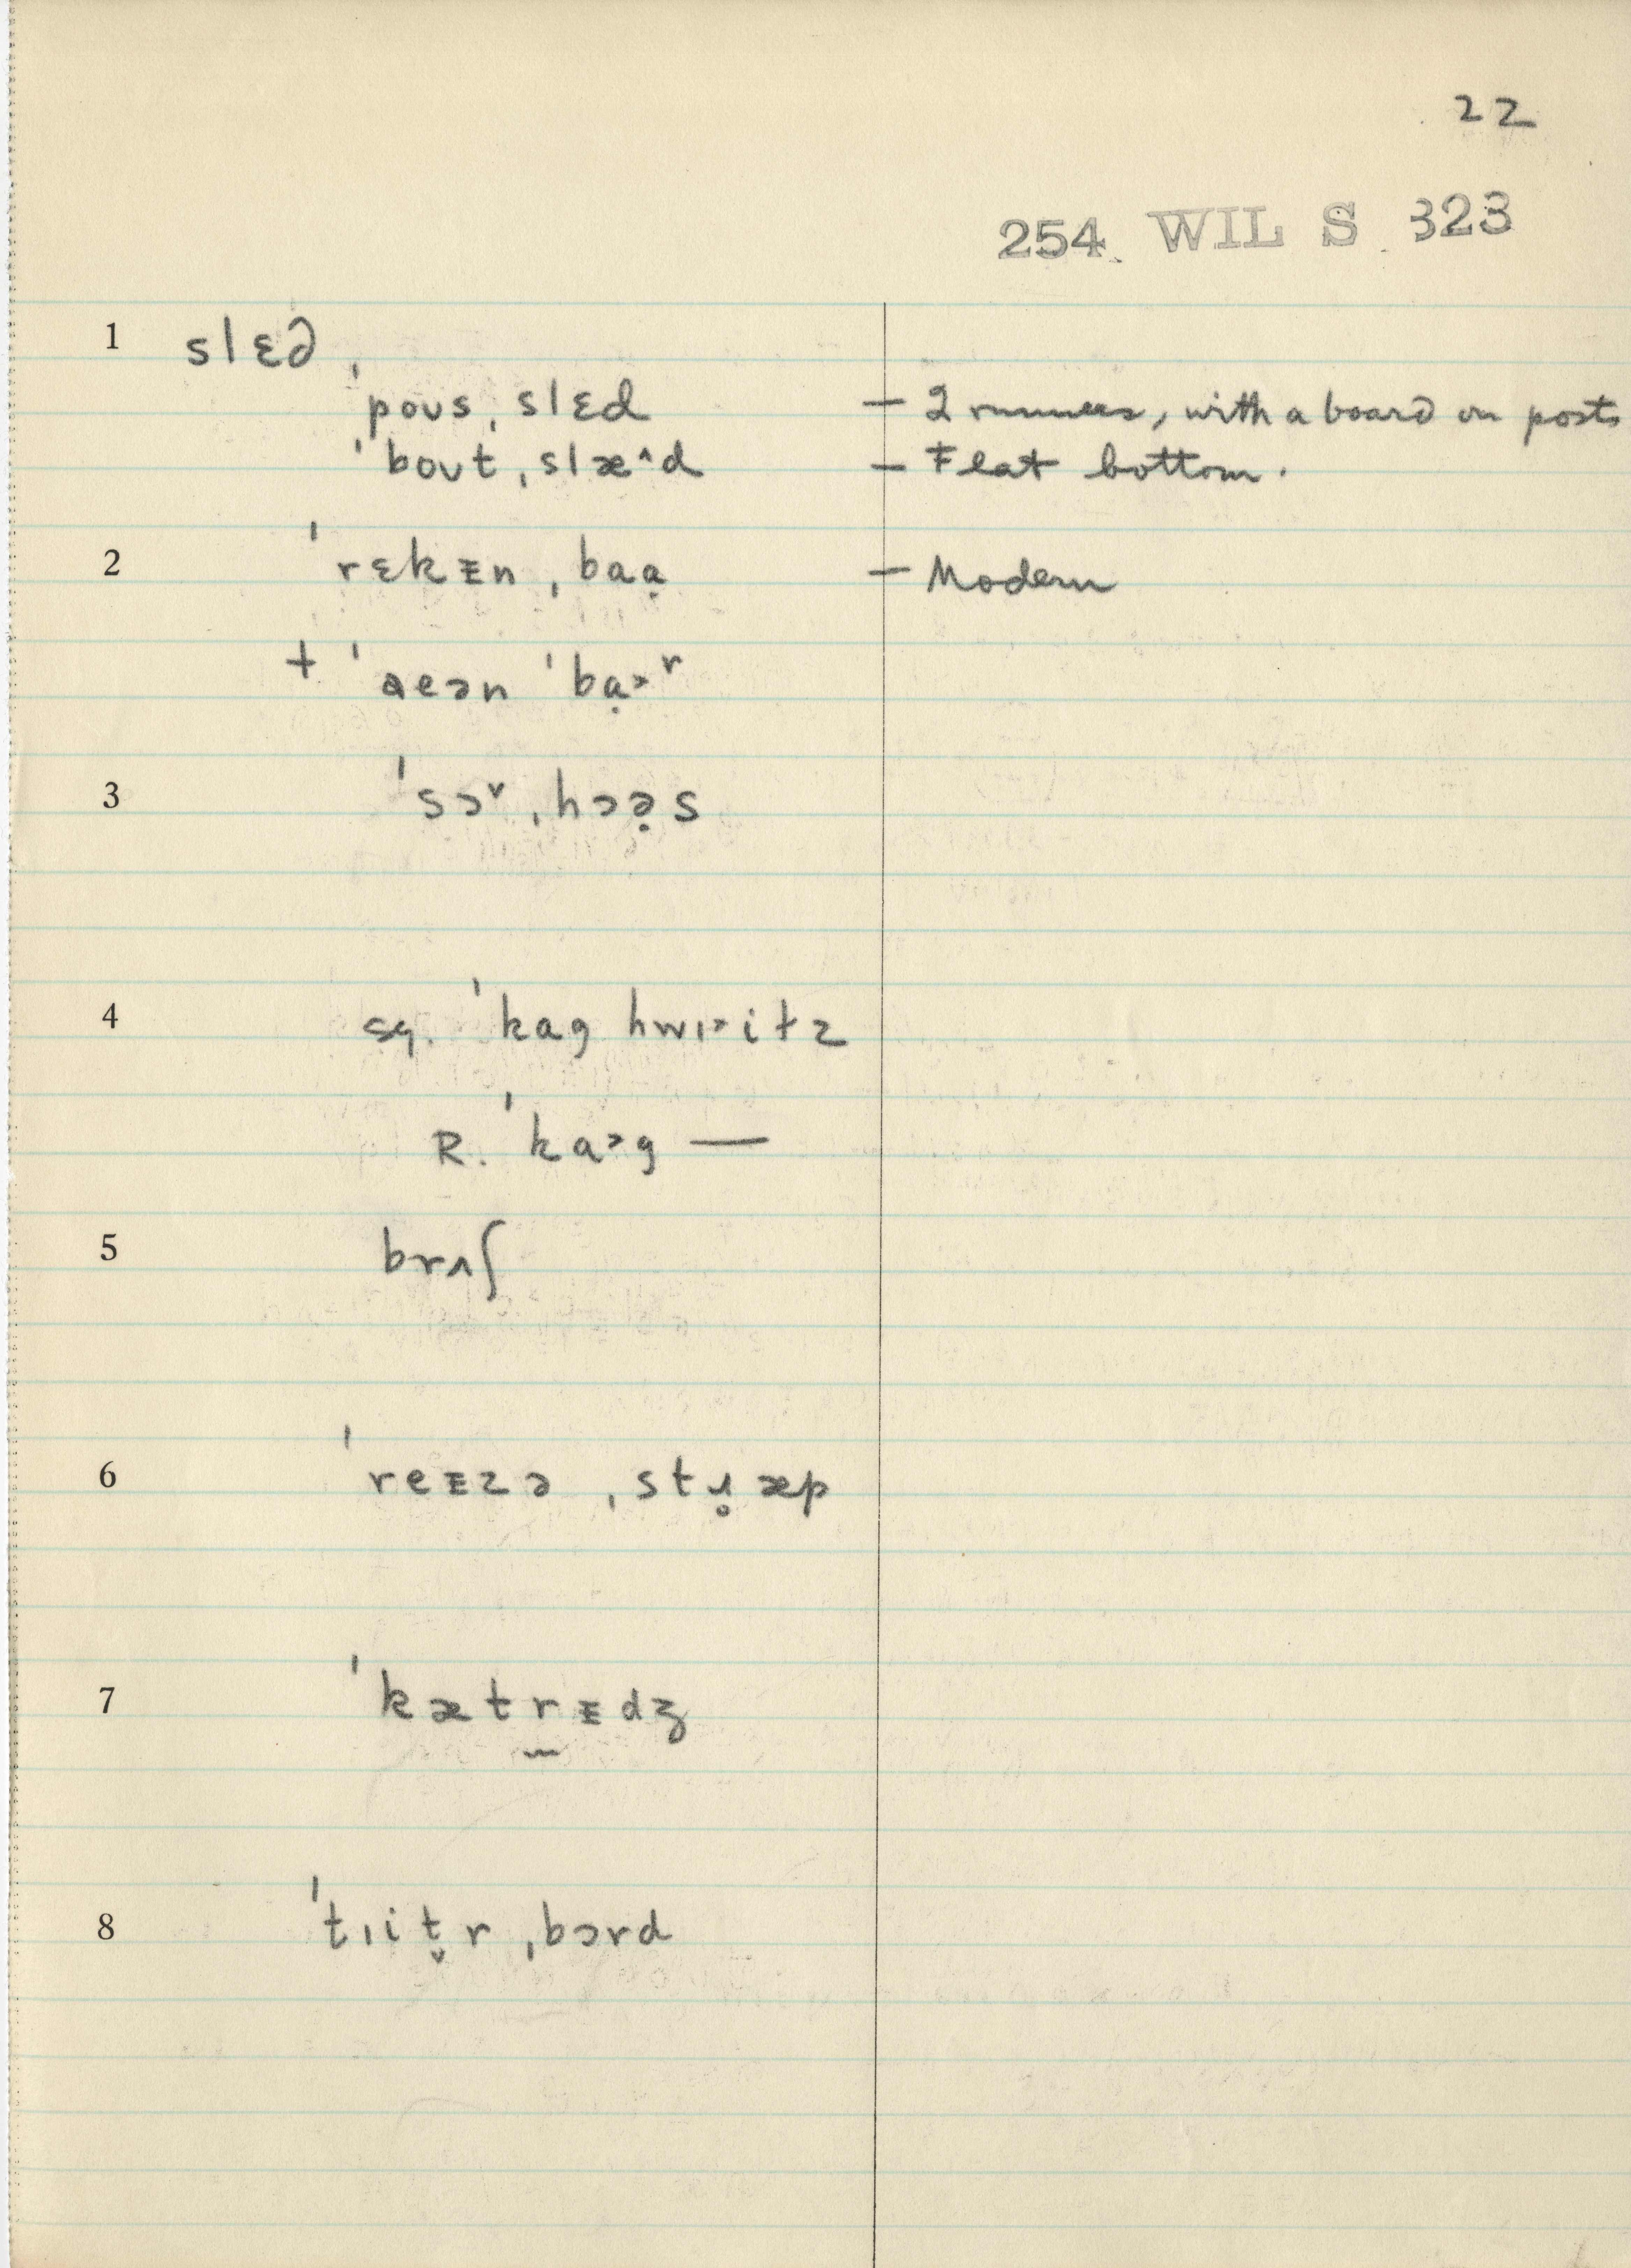 22
254 WIL S 323
1 slɛd
ˈpoʊsˌslɛd — 2 runners, with a board on posts
ˈboʊtˌslæ^d — Flat bottom.
2 ˈrɛkᵻnˌbaɑ̣ — Modern
+ ˈaeən ˈbɑ̣˃ʳ
3 ˈsɔ˅ˌhɔə̣s
4 sg. ˈkag hwɪ˃iɫz
R. ˈka˃g —
5 brʌʃ
6 ˈreᵻzəˌstɹ̥æp
7 ˈkætrᵻdʒ
8 ˈtɪit̬rˌbɔrd